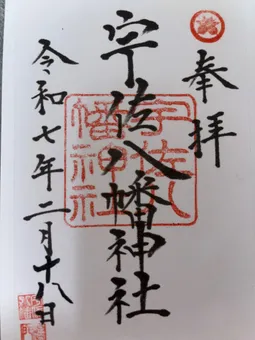 奉拝
宇佐八幡神社
宇佐八幡神社
令和七年二月十八日